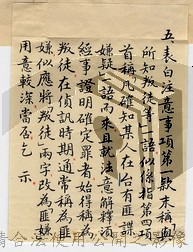 五、表白注意事項第一款末稱與
所知叛徒等一語似係指第四項
首稱凡確知某人在台有匪諜
嫌疑一語而來且就法意解釋須
經事證明確定罪者始得稱為
叛徒在偵訊時期通常稱為匪
嫌似應將「叛徒」兩字改為匪嫌
用意較深當否乞 示。
請合法使用公開之影像